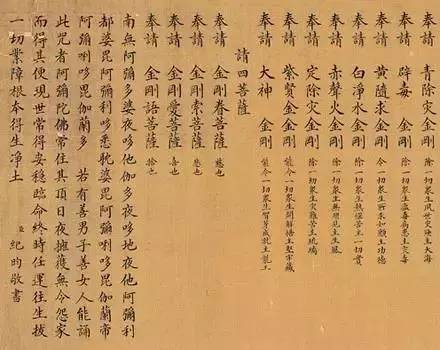 奉請 青除災金剛 除一切衆生夙世災殃主大海
奉請 辟毒金剛 除一切衆生瘟毒病患主災毒
奉請 黃隨求金剛 令一切衆生所求如願主功德
奉請 白淨水金剛 除一切衆生熱惱苦主一切寶
奉請 赤聲火金剛 除一切衆生無明見主生風
奉請 定除災金剛 除一切衆生災難苦主琉璃
奉請 紫賢金金剛 能令一切衆生開解悟主堅牢藏
奉請 大神金剛 能令一切衆生智芽成就主龍王
請四菩薩
奉請 金剛眷菩薩 慈也
奉請 金剛索菩薩 悲也
奉請 金剛愛菩薩 喜也
奉請 金剛語菩薩 捨也
南無阿彌多婆夜哆他伽多夜哆地夜他阿彌利
都婆毘阿彌唎哆悉耽婆毘阿彌唎哆毘伽蘭帝
阿彌唎哆毘伽蘭多 若有善男子善女人能誦
此咒者阿彌陀佛常住其頂日夜擁護無令怨家
而得其便現世常得安穩臨命終時任運往生拔
一切業障根本得生淨土 臣紀昀敬書